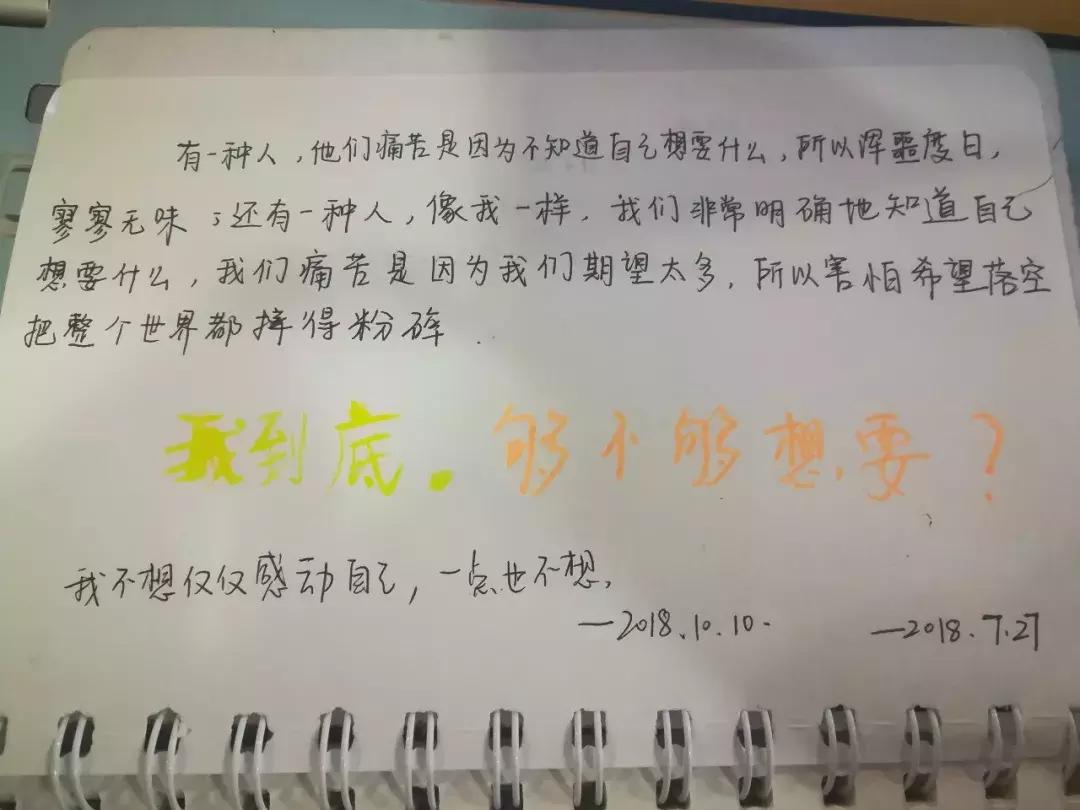 有一种人，他们痛苦是因为不知道自己想要什么，所以浑噩度日，
寥寥无味；还有一种人，像我一样，我们非常明确地知道自己
想要什么，我们痛苦是因为我们期望太多，所以害怕希望落空
把整个世界都摔得粉碎.
我到底。够不够想要？
我不想仅仅感动自己，一点也不想。
—2018.10.10. —2018.7.27